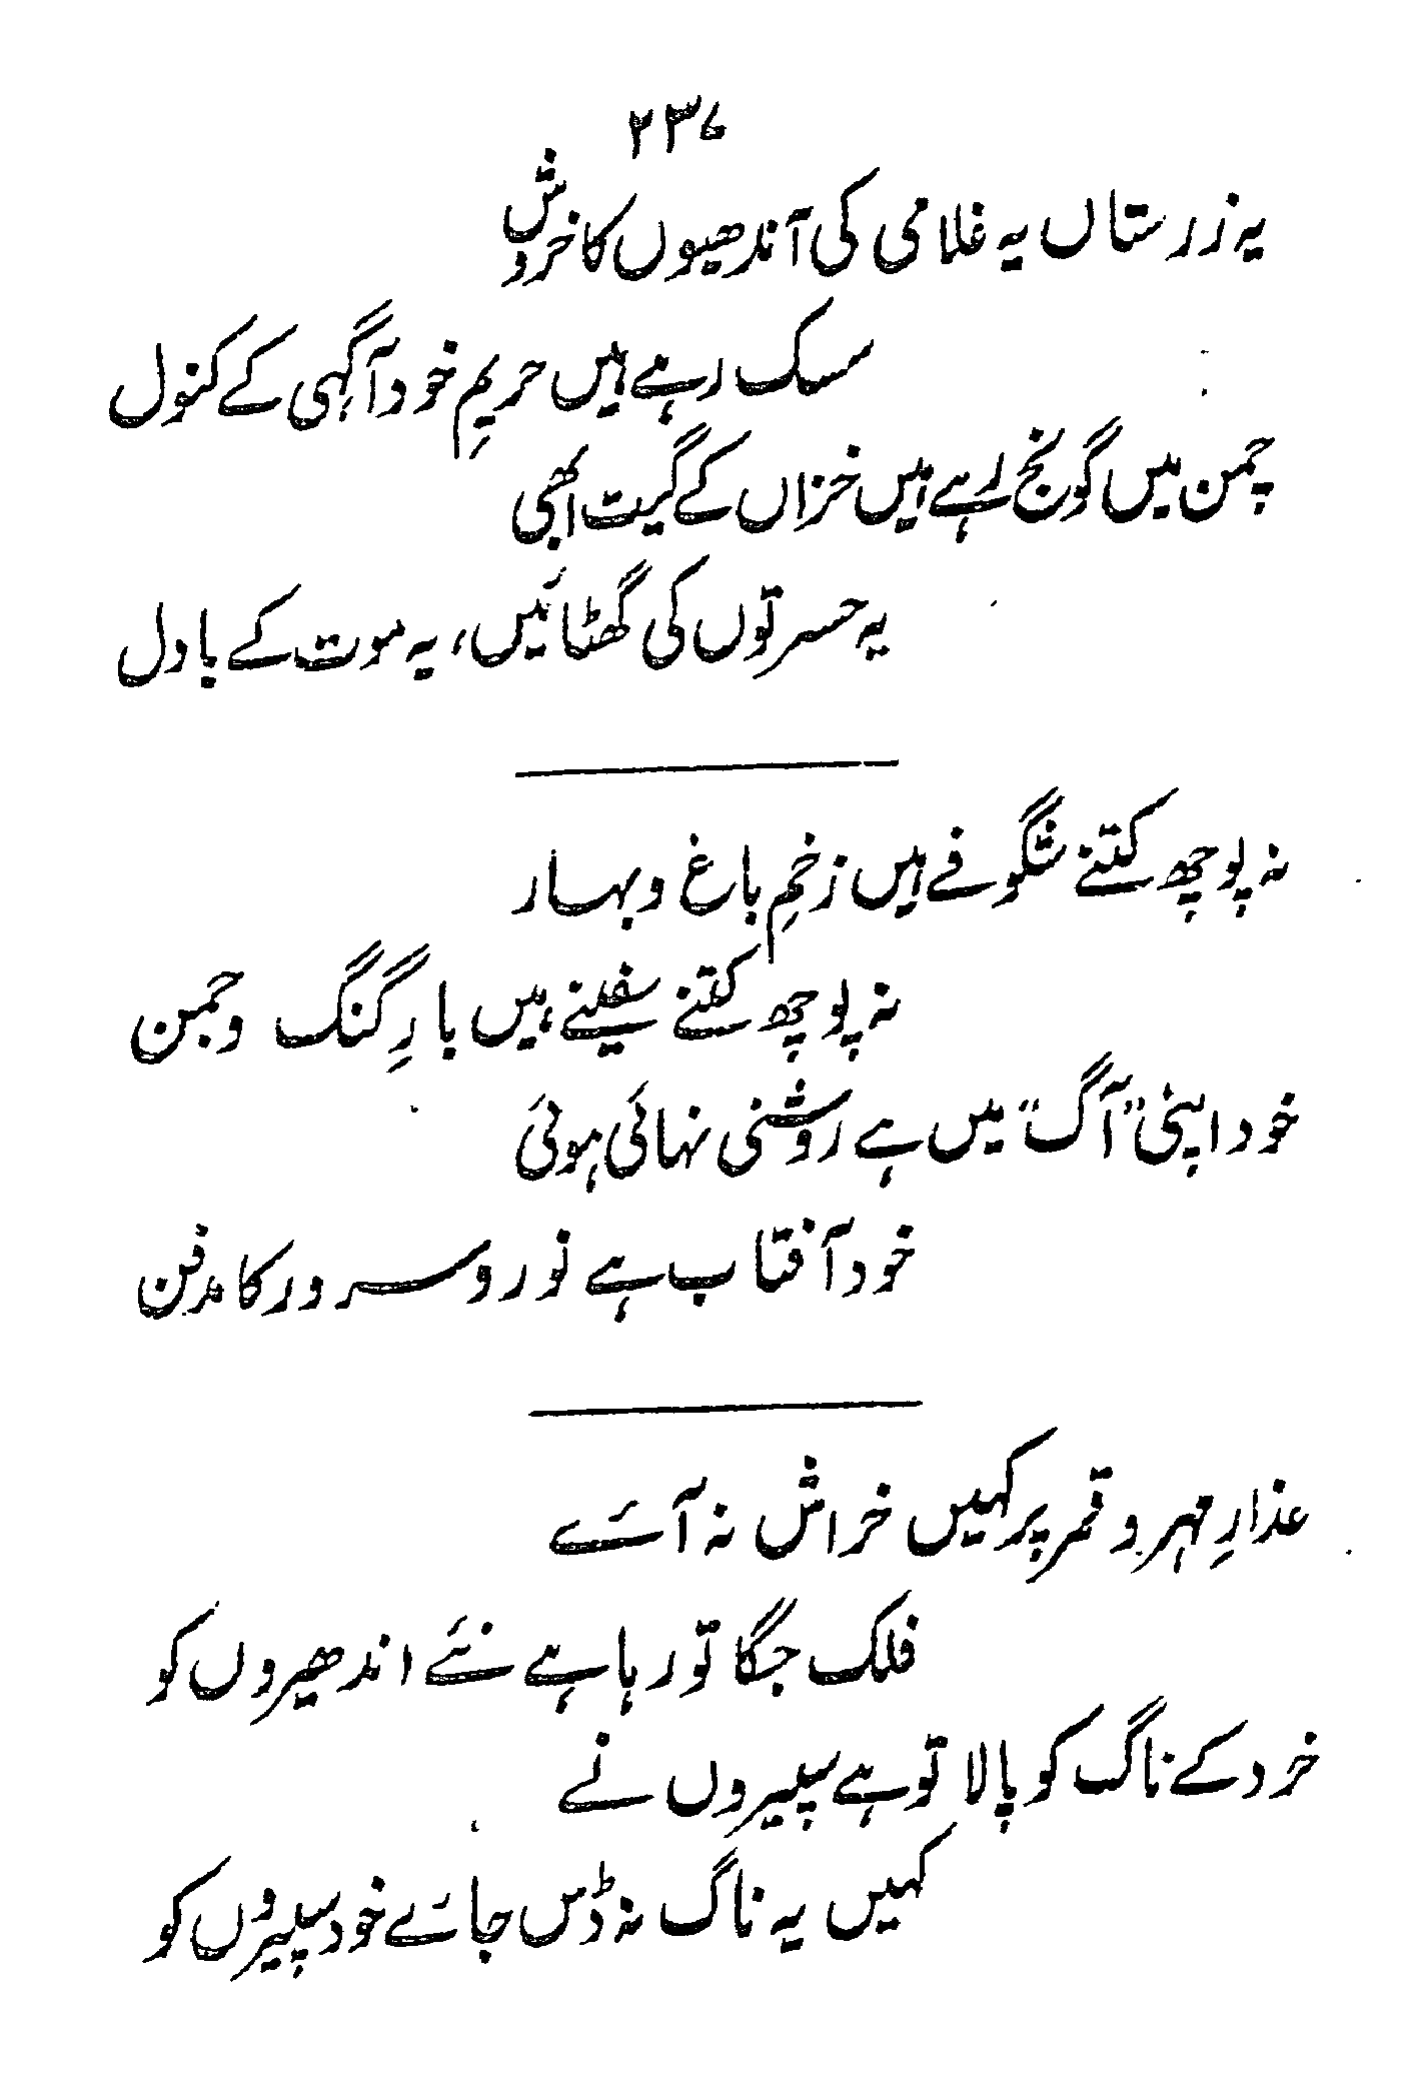 ۲۳۷
یہ زرستاں یہ غلامی کی آندھیوں کا خروش
سسک رہے ہیں حریمِ خود آگہی کے کنول
چمن میں گونج رہے ہیں خزاں کے گیت ابھی
یہ حسرتوں کی گھٹائیں، یہ موت کے بادل
نہ پوچھ کتنے شگوفے ہیں زخمِ باغ و بہار
نہ پوچھ کتنے سفینے ہیں بارِ گنگ و جمن
خود اپنی "آگ" میں ہے روشنی نہائی ہوئی
خود آفتاب ہے نور و سرور کا مدفن
عذارِ مہر و قمر پر کہیں خراش نہ آئے
فلک جگا تو رہا ہے نئے اندھیروں کو
خرد کے ناگ کو پالا تو ہے سپیروں نے
کہیں یہ ناگ نہ ڈس جائے خود سپیروں کو